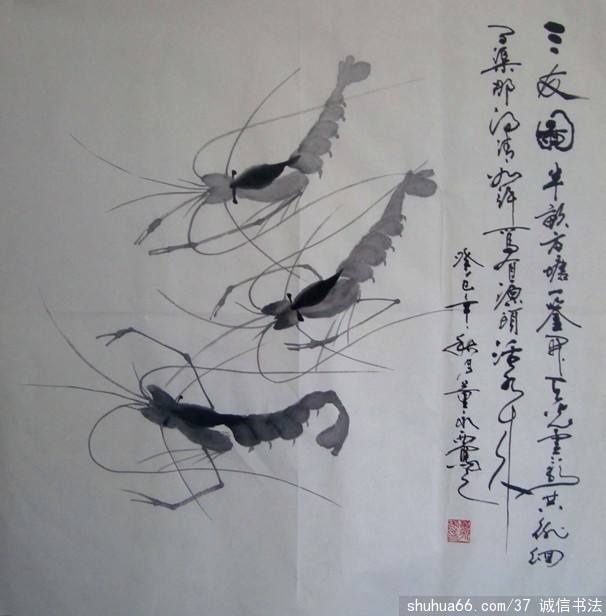 三友圖 半畝方塘一鑒開天光雲影共徘徊
问渠那得清如許爲有源頭活水来
癸巳年秋月董永
shuhua66.com/37 诚信书法